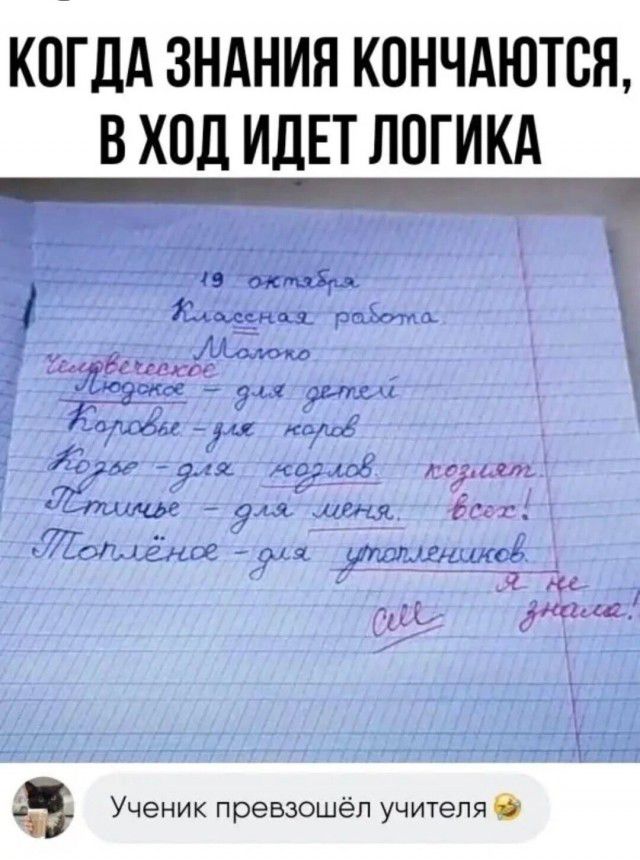 КОГДА ЗНАНИЯ КОНЧАЮТСЯ,
В ХОД ИДЕТ ЛОГИКА
19 октября
Классная работа
Молоко
Человеческое
Людское - для детей
Коровье - для коров
Козье - для козлов. козлят.
Птичье - для меня. всех!
Топлёное - для утоплеников.
я не
знала!
см
Ученик превзошёл учителя🤣